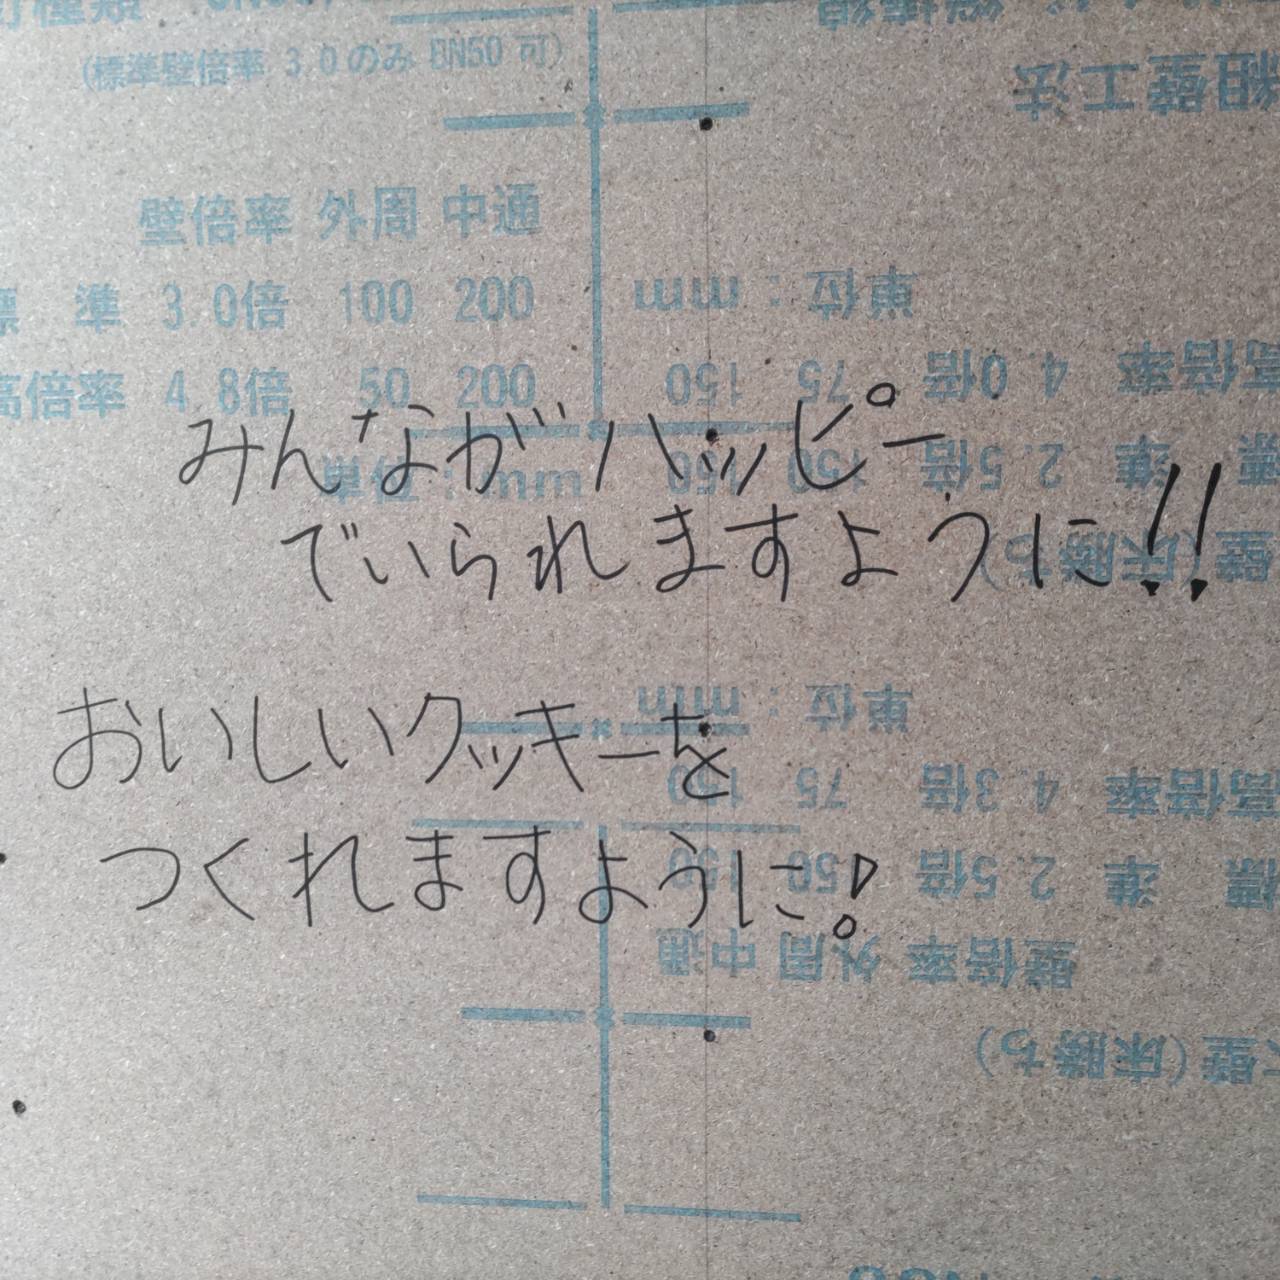 (標準壁倍率 3.0のみ BN50 可)
組壁工法
壁倍率 外周 中通
標 準 3.0倍 100 200
高倍率 4.8倍 50 200
単位:mm
単位:mm
高倍率 4.0倍 75 150
標 準 2.5倍 150 150
壁(床勝ち)
みんながハッピー
でいられますように!!
おいしいクッキーを
つくれますように!
単位:mm
高倍率 4.3倍 75 150
標 準 2.5倍 150 150
壁倍率 外周 中通
壁(床勝ち)